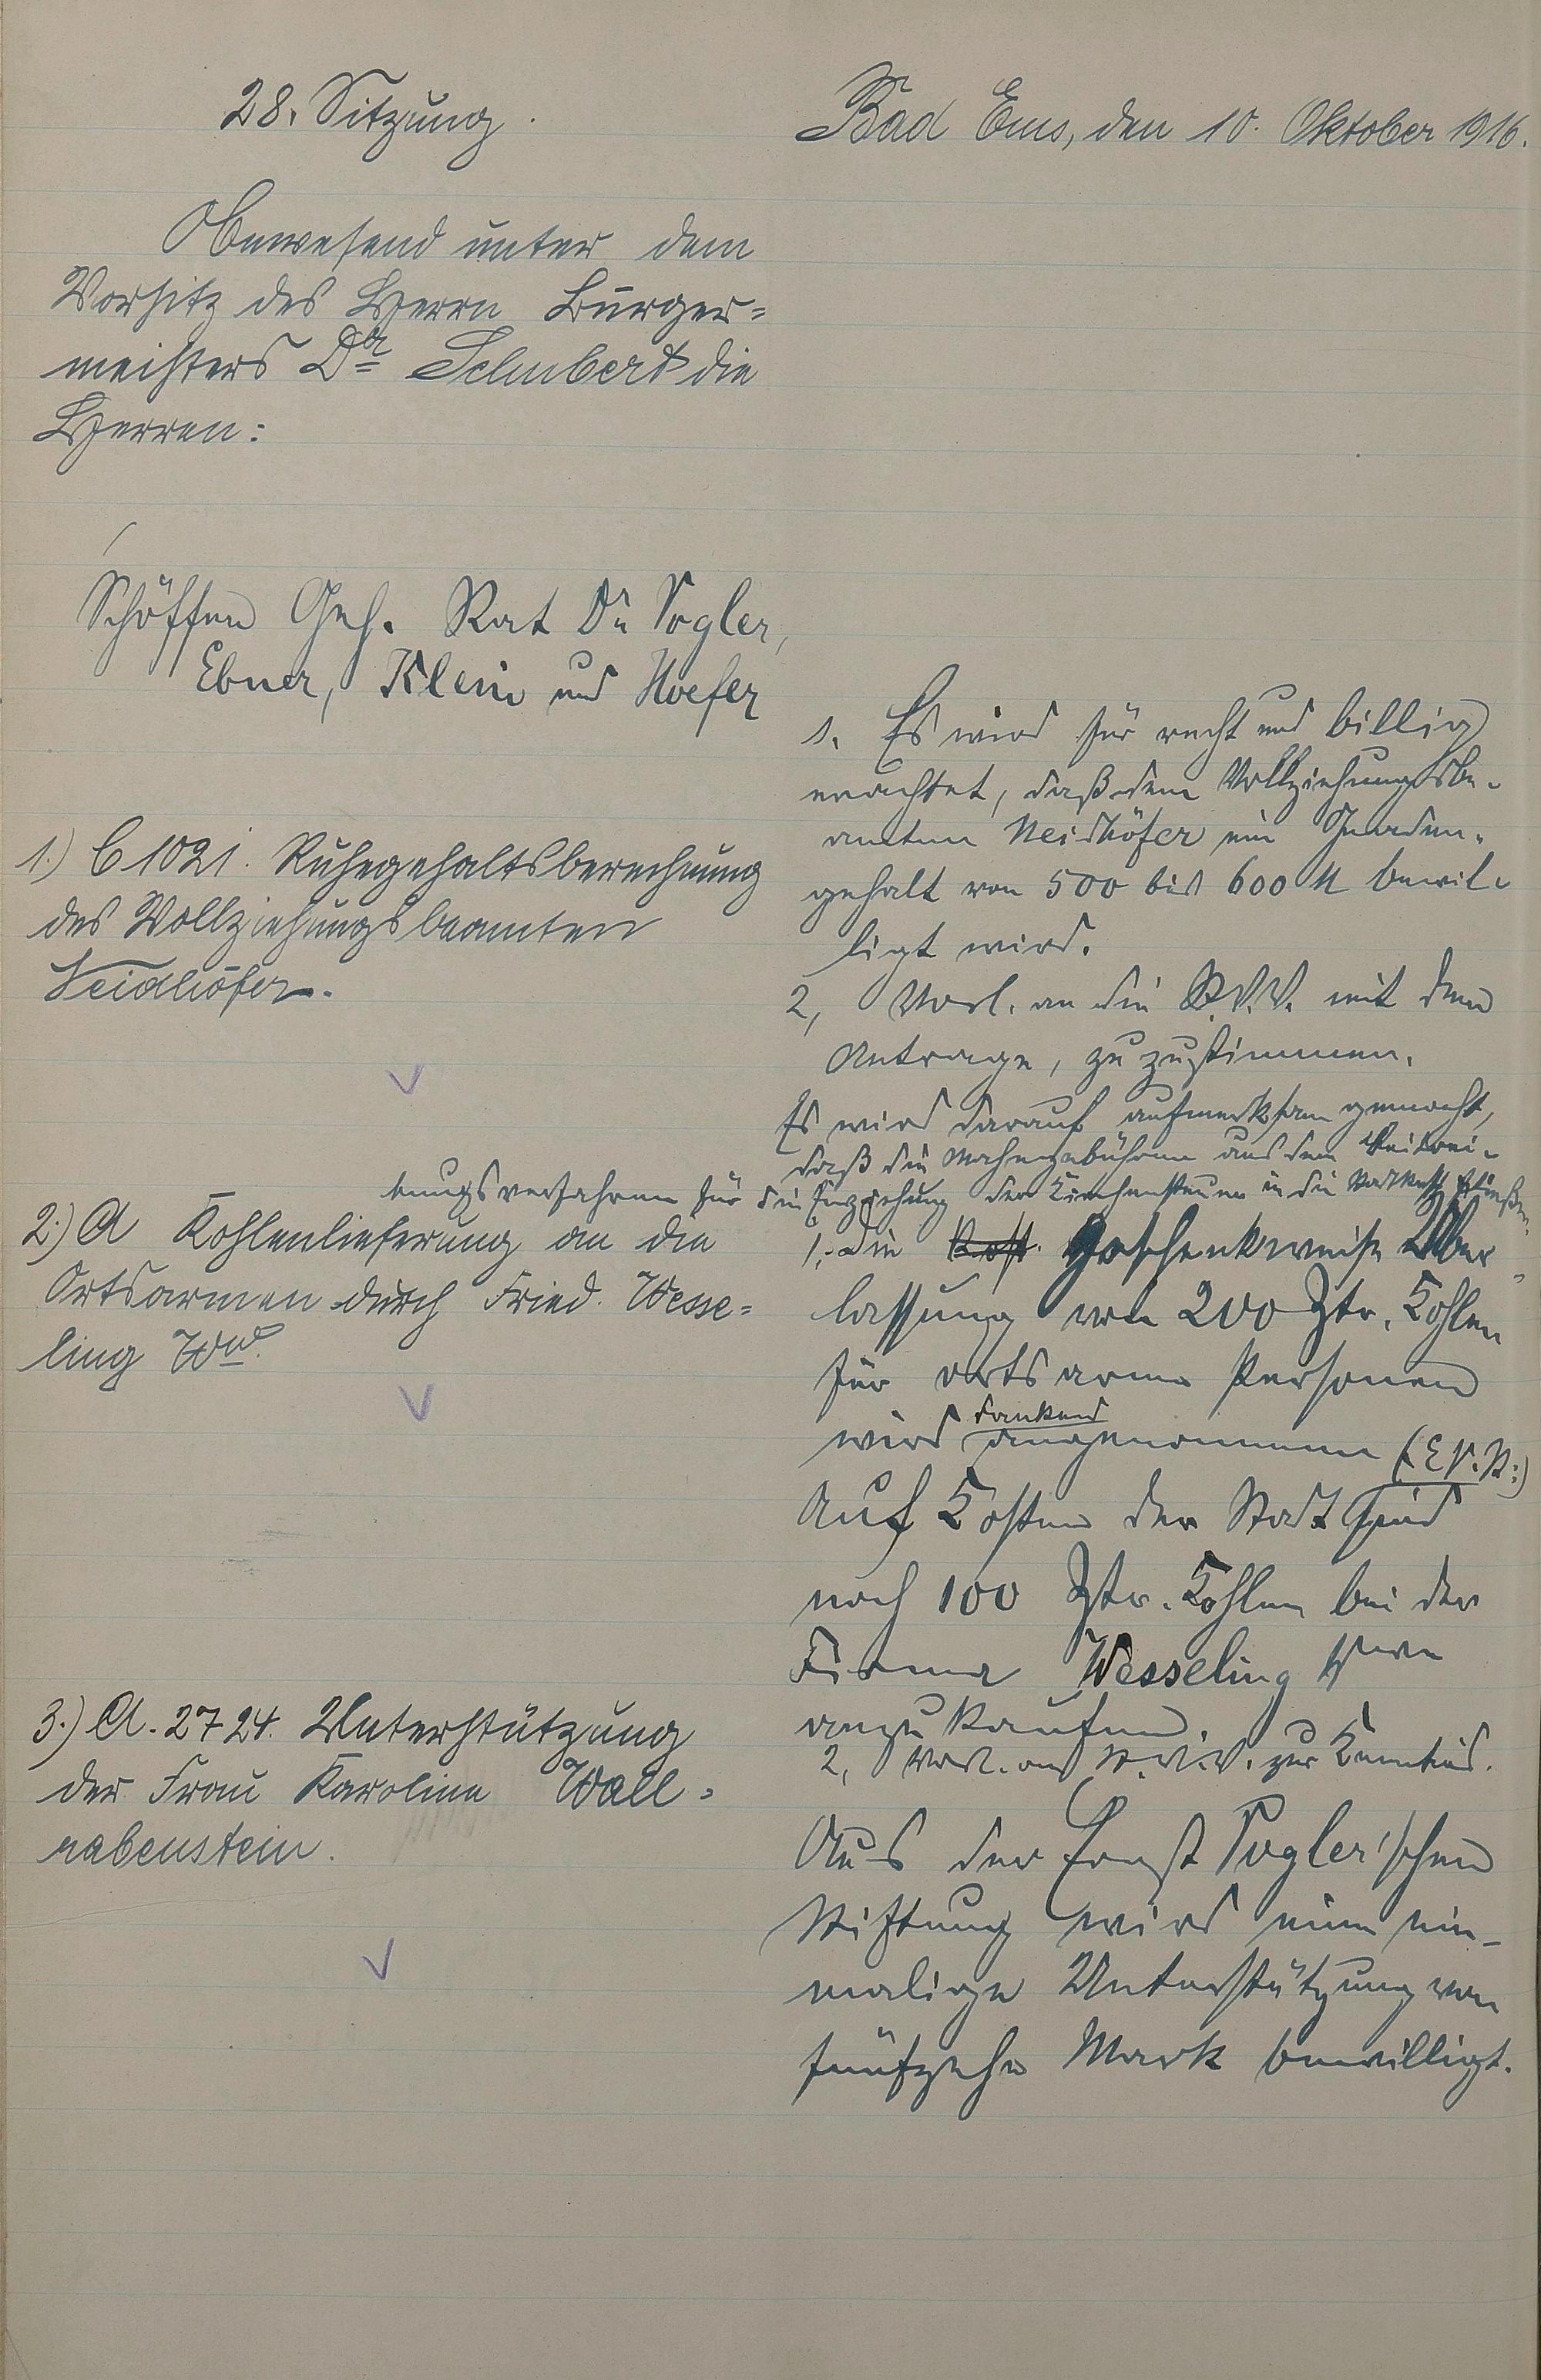 28. Sitzung.
Bad Ems, den 10. Oktober 1916.
Anwesend unter dem
Vorsitz des Herrn Bürger=
meisters Dr Schubert die
Herren:
Schöffen Geh. Rat Dr Vogler,
Ebner, Klein und Hoefer
1.) C 1021. Ruhegehaltsberechnung
des Vollziehungsbeamten
Neidhöfer.
1. Es wird für recht und billig
erachtet, daß dem Vollziehungsbe-
amten Neidhöfer ein Gnaden-
gehalt von 500 bis 600 M bewil-
ligt wird.
2, Vorl. an die St.V.V. mit dem
Antrage, zuzustimmen.
Es wird darauf aufmerksam gemacht,
daß die Mahngebühren aus dem Beitrei-
bungsverfahren für die Einziehung der Kirchensteuer in die Stadtkasse fließen.
2.) A Kohlenlieferung an die
Ortsarmen durch Fried. Wesse=
ling Ww.
1. Die Kost. geschenkweise Über-
lassung von 200 Ztr. Kohlen
für ortsarme Personen
wird dankend angenommen (E.V.V.)
Auf Kosten der Stadt sind
noch 100 Ztr. Kohlen bei der
Firma Wesseling Wwe
anzukaufen.
2, Vorl. an St.V.V. zur Kenntnis.
3.) A. 2724. Unterstützung
der Frau Karoline Wall=
rabenstein.
Aus der Ernst Vogler'schen
Stiftung wird eine ein-
malige Unterstützung von
fünfzehn Mark bewilligt.